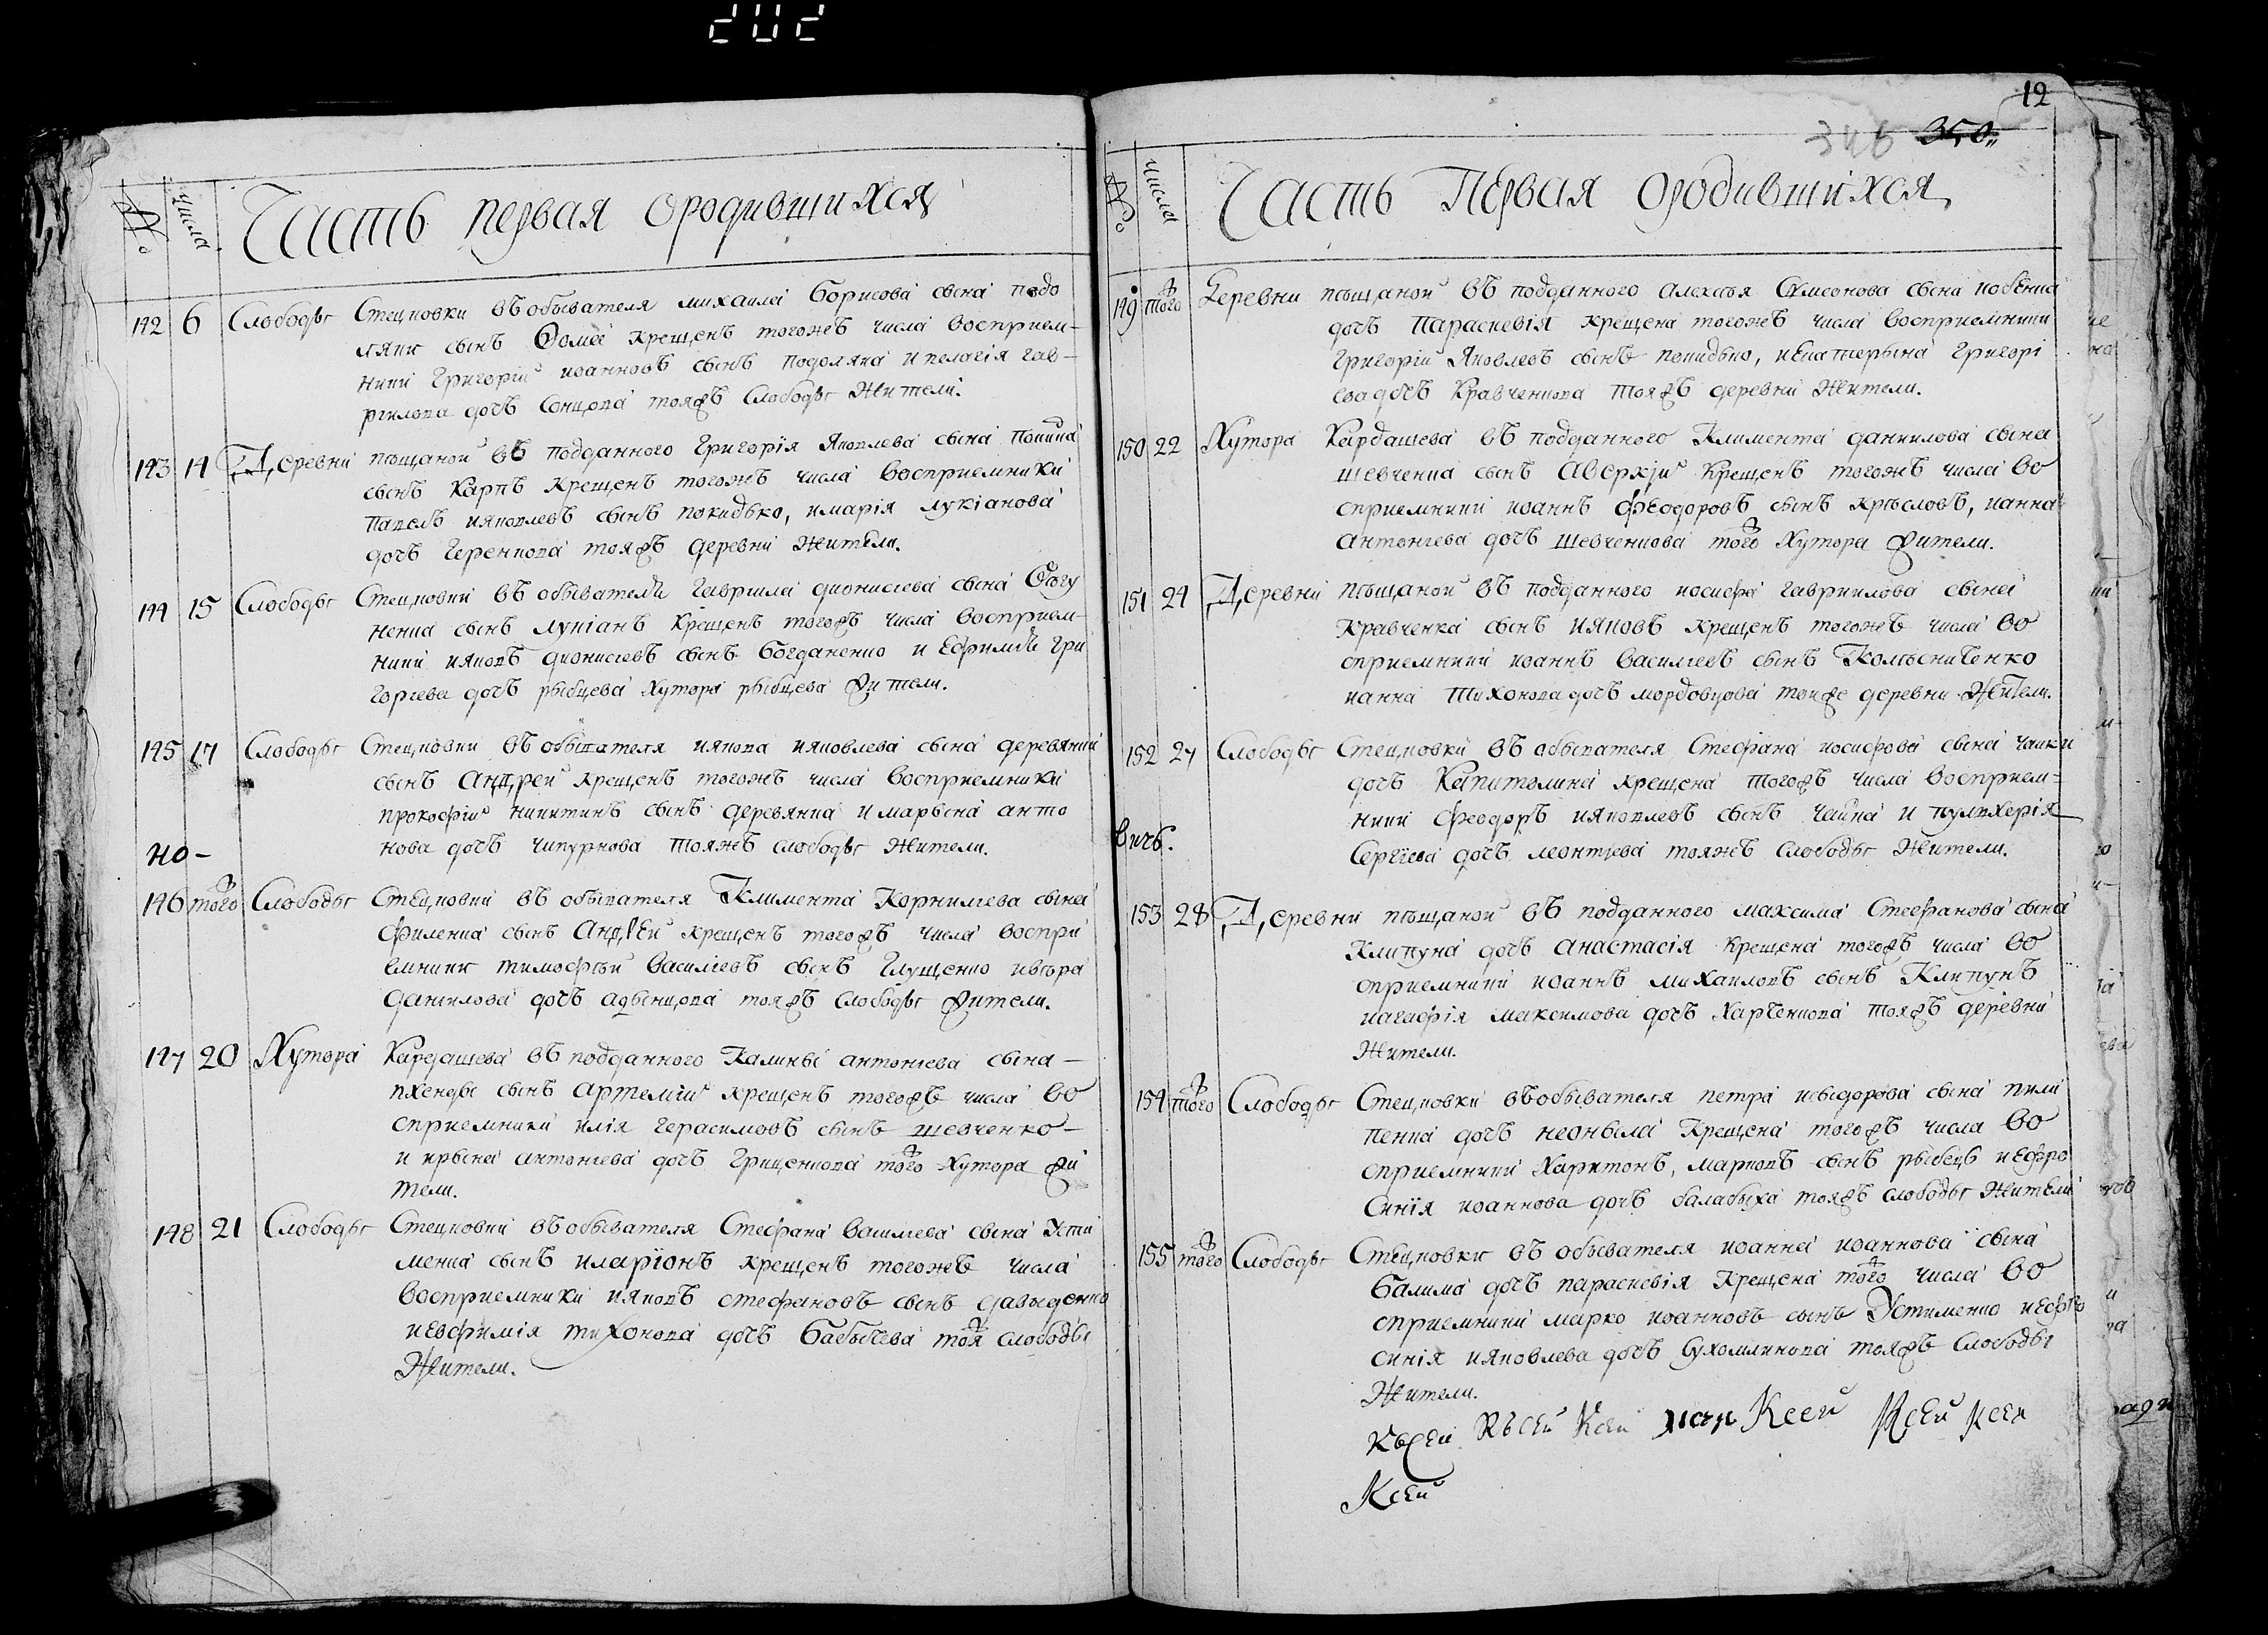 202
№ числа Часть первая ородившихся
142 6 Слободы Стецковки въ обывателя михаила борисова сына подо
ляки сынъ Фомаі крещенъ тогожъ числа восприем-
ники григоріи иоанновъ сынъ подоляка и пелагія гав-
рилова дочъ Сонцова тояжъ Слободы жители.
143 14 Деревни пѣщаной въ подданного Григорія Яковлева сына
сынъ Карпъ крещенъ тогожъ числа восприемники
Павелъ ияковлевъ сынъ покидько, имарія лукіанова
дочъ Геренкова тояжъ деревни жители.
144 15 Слободы Стецковки въ обывателя Гаврила дионисіева сына Богу
ненка сынъ лукіанъ крещенъ тогожъ числа восприем-
ники ияковъ дионисіевъ сынъ богданенко и Ефимія гри
горіева дочъ рыбцева Хутора рыбцева жители.
145 17 Слободы Стецковки въ обывателя иякова ияковлева сына деревянки
сынъ Андреи крещенъ тогожъ числа восприемники
прокофіи никитинъ сынъ деревянка и марѳна анто
нова дочъ чипурнова тояжъ слободы жители.
но-
146 того Слободы Стецковки въ обывателя Климента Корниліева сына
филенка сынъ Андреи крещенъ тогожъ числа воспри
емники тимофѣи василіевъ сынъ Глущенко ивѣра
даниилова дочъ тояжъ слободы жители.
147 20 Хутора Кардашева въ подданного Калины антоніева сына-
сынъ артеміи крещенъ тогожъ числа во
сприемники илія герасимовъ сынъ шевченко-
и ирына антоніева дочъ Гриценкова того Хутора жи
тели.
148 21 Слободы Стецковки въ обывателя Стефана василіева сына Усти
менка сынъ иларіонъ крещенъ тогожъ числа
восприемники ияковъ стефановъ сынъ давыденко
иевфимія тихонова дочъ Бабычева тоя слободы
Жители.
12
346 350
№ числа Часть Первая ородившихся
149 того Деревни пѣщаной въ подданного алексѣя Сѵмеонова сына
дочъ Параскевія крещена тогожъ числа восприемники
григоріи Яковлевъ сынъ покидько, иЕкатерына григорі
ева дочъ Кравченкова тояжъ деревни жители.
150 22 Хутора Кардашева въ подданного Климента даниилова сына
шевченка сынъ аверкіи крещенъ тогожъ числа во
сприемники иоаннъ феодоровъ сынъ крысловъ, ианна
антоніева дочъ шевченкова того Хутора жители.
151 24 Деревни пѣщаной въ подданного иосифа гавриилова сына
Кравченка сынъ ияковъ крещенъ тогожъ числа во
сприемники иоаннъ василіевъ сынъ Колѣсниченко
ианна Тихонова дочъ мордовцова тоижъ деревни жители.
152 27 Слободы Стецковки въ обывателя Стефана иосифова сына чаики
дочъ Капитолина крещена тогожъ числа восприем-
ники феодоръ ияковлевъ сынъ чаика и пулхерія
Сергіева дочъ леонтіева тояжъ слободы жители.
вичъ.
153 28 Деревни пѣщаной въ подданного максима Стефанова сына
Клипуна дочъ анастасія крещена тогожъ числа во
сприемники иоаннъ михаиловъ сынъ Клипунъ
иагафія максимова дочъ Харченкова тояжъ деревни
жители.
154 того Слободы Стецковки въ обывателя петра исидорова сына пили
пенка дочъ неонила крещена тогожъ числа во
сприемники Харитонъ, марковъ сынъ рыбецъ иЕвфро
синія иоаннова дочъ балабыха тояжъ слободы жители
155 того Слободы Стецковки въ обывателя иоанна иоаннова сына
балима дочъ параскевія крещена того числа во
сприемники марко иоанновъ сынъ Устименко иЕвфро
синія ияковлева дочъ Сухомлинова тояжъ слободы
жители.
Къ сей Къ сей Ксеи Ксеи Ксеи Ксеи
Ксеи